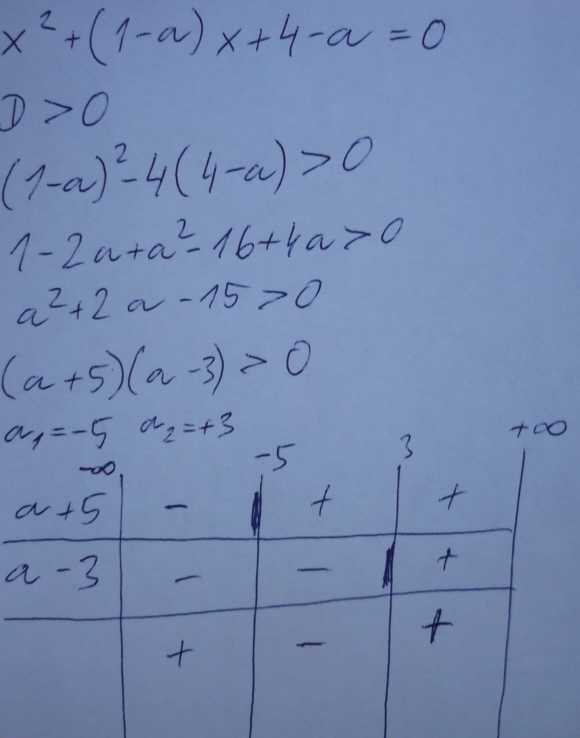 x² + (1-a) x + 4 - a = 0
D > 0
(1-a)² - 4(4-a) > 0
1 - 2a + a² - 16 + 4a > 0
a² + 2a - 15 > 0
(a+5)(a-3) > 0
a₁ = -5 a₂ = +3
-∞ -5 3 +∞
a+5 - + +
a-3 - - +
+ - +